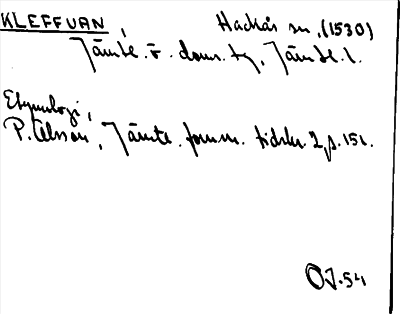 KLEFFUAN, Hackås sn, (1530)
Jämtl. ö. doms. tg, Jämtl. l.
Etymologi,
P. Olsson, Jämtl. fornm. tidskr. 2, s. 151.
OJ. 54